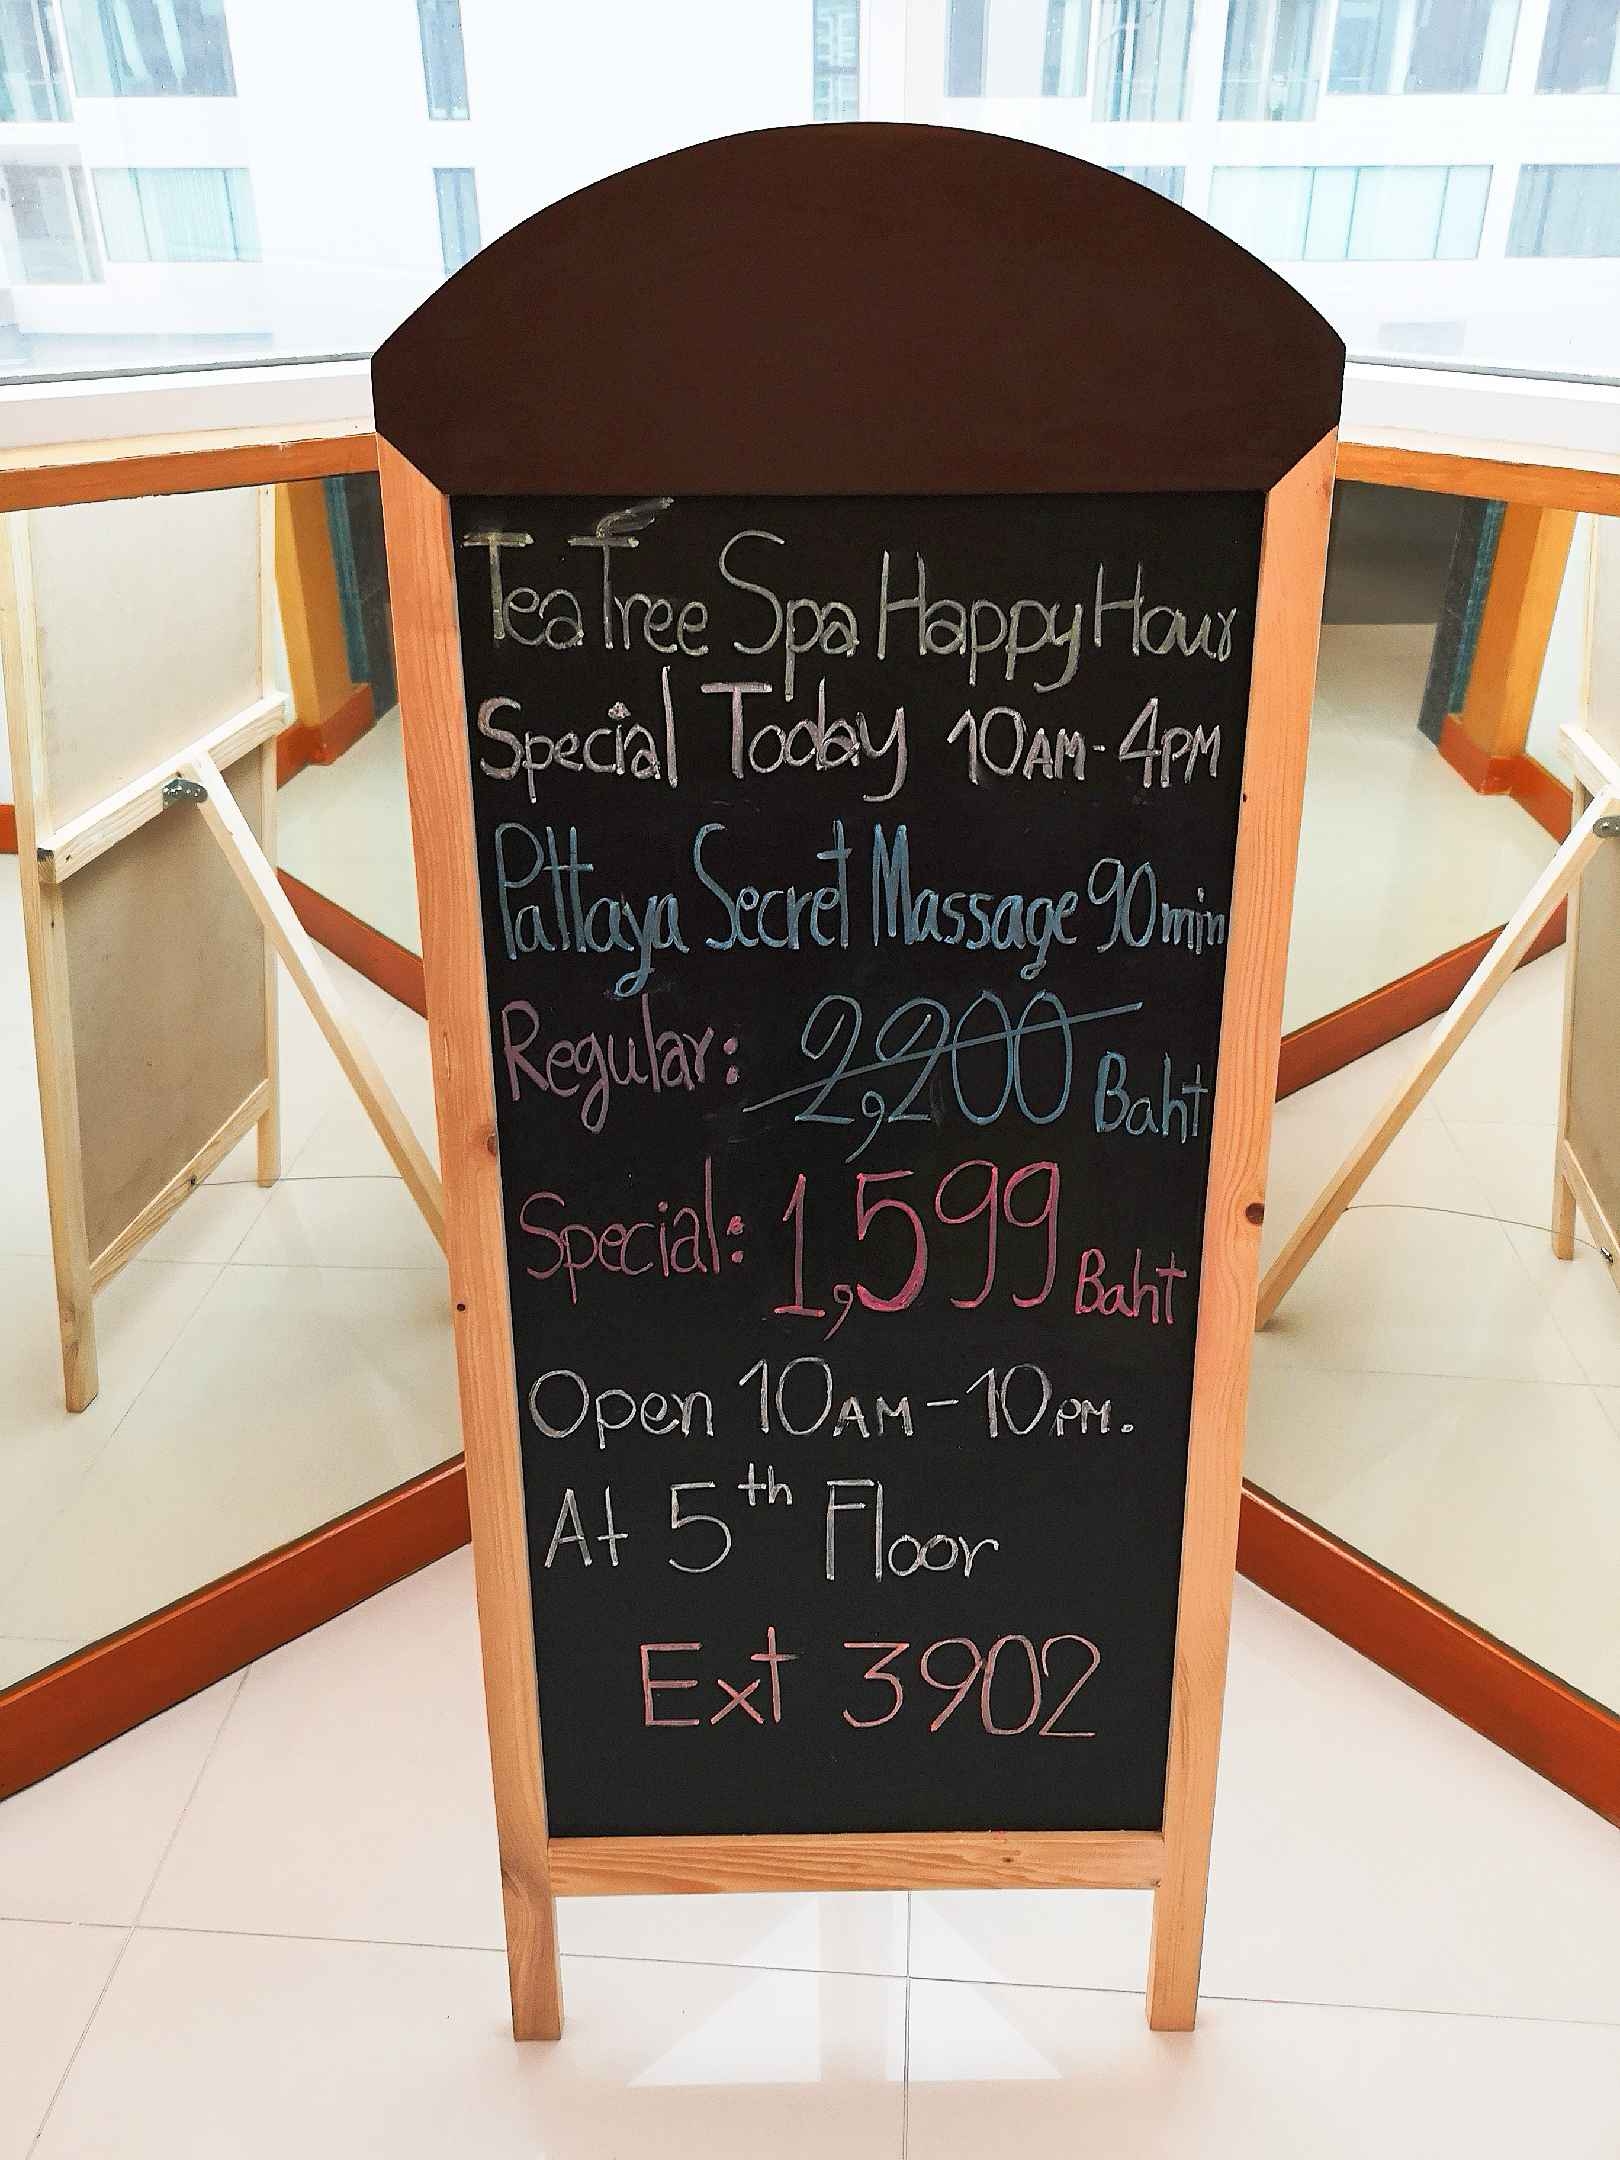 Tea Tree Spa Happy Hour
Special Today 10AM - 4PM
Pattaya Secret Massage 90min
Regular: 2,200 Baht
Special: 1,599 Baht
Open 10AM - 10PM.
At 5th Floor
Ext 3902